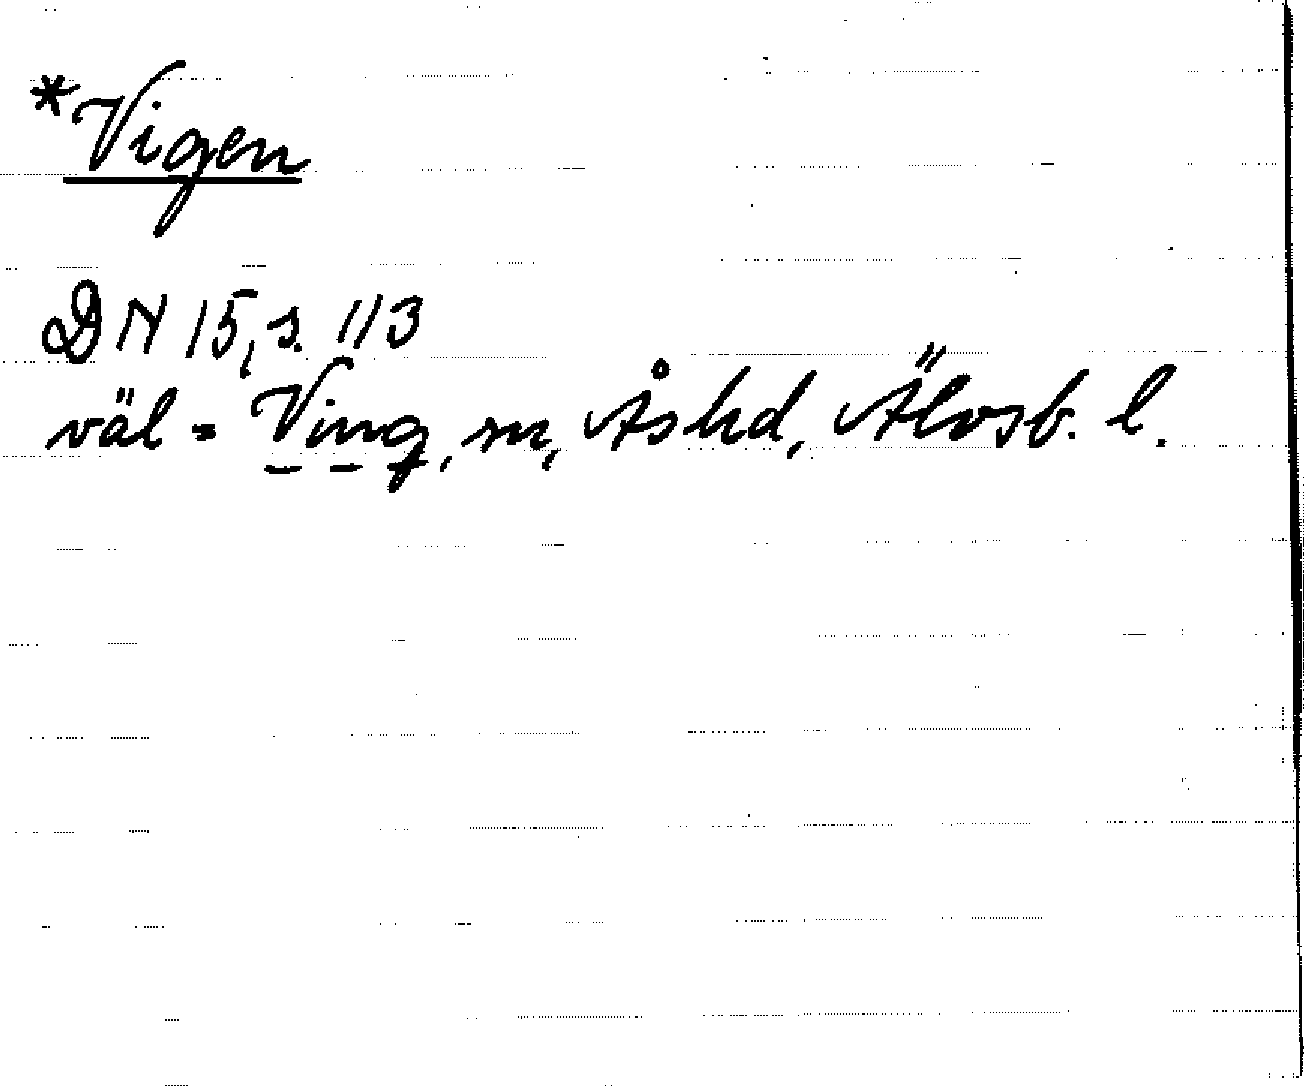 *Vigen
DN 15, s. 113
väl = Ving, sn, Ås hd, Älvsb. l.